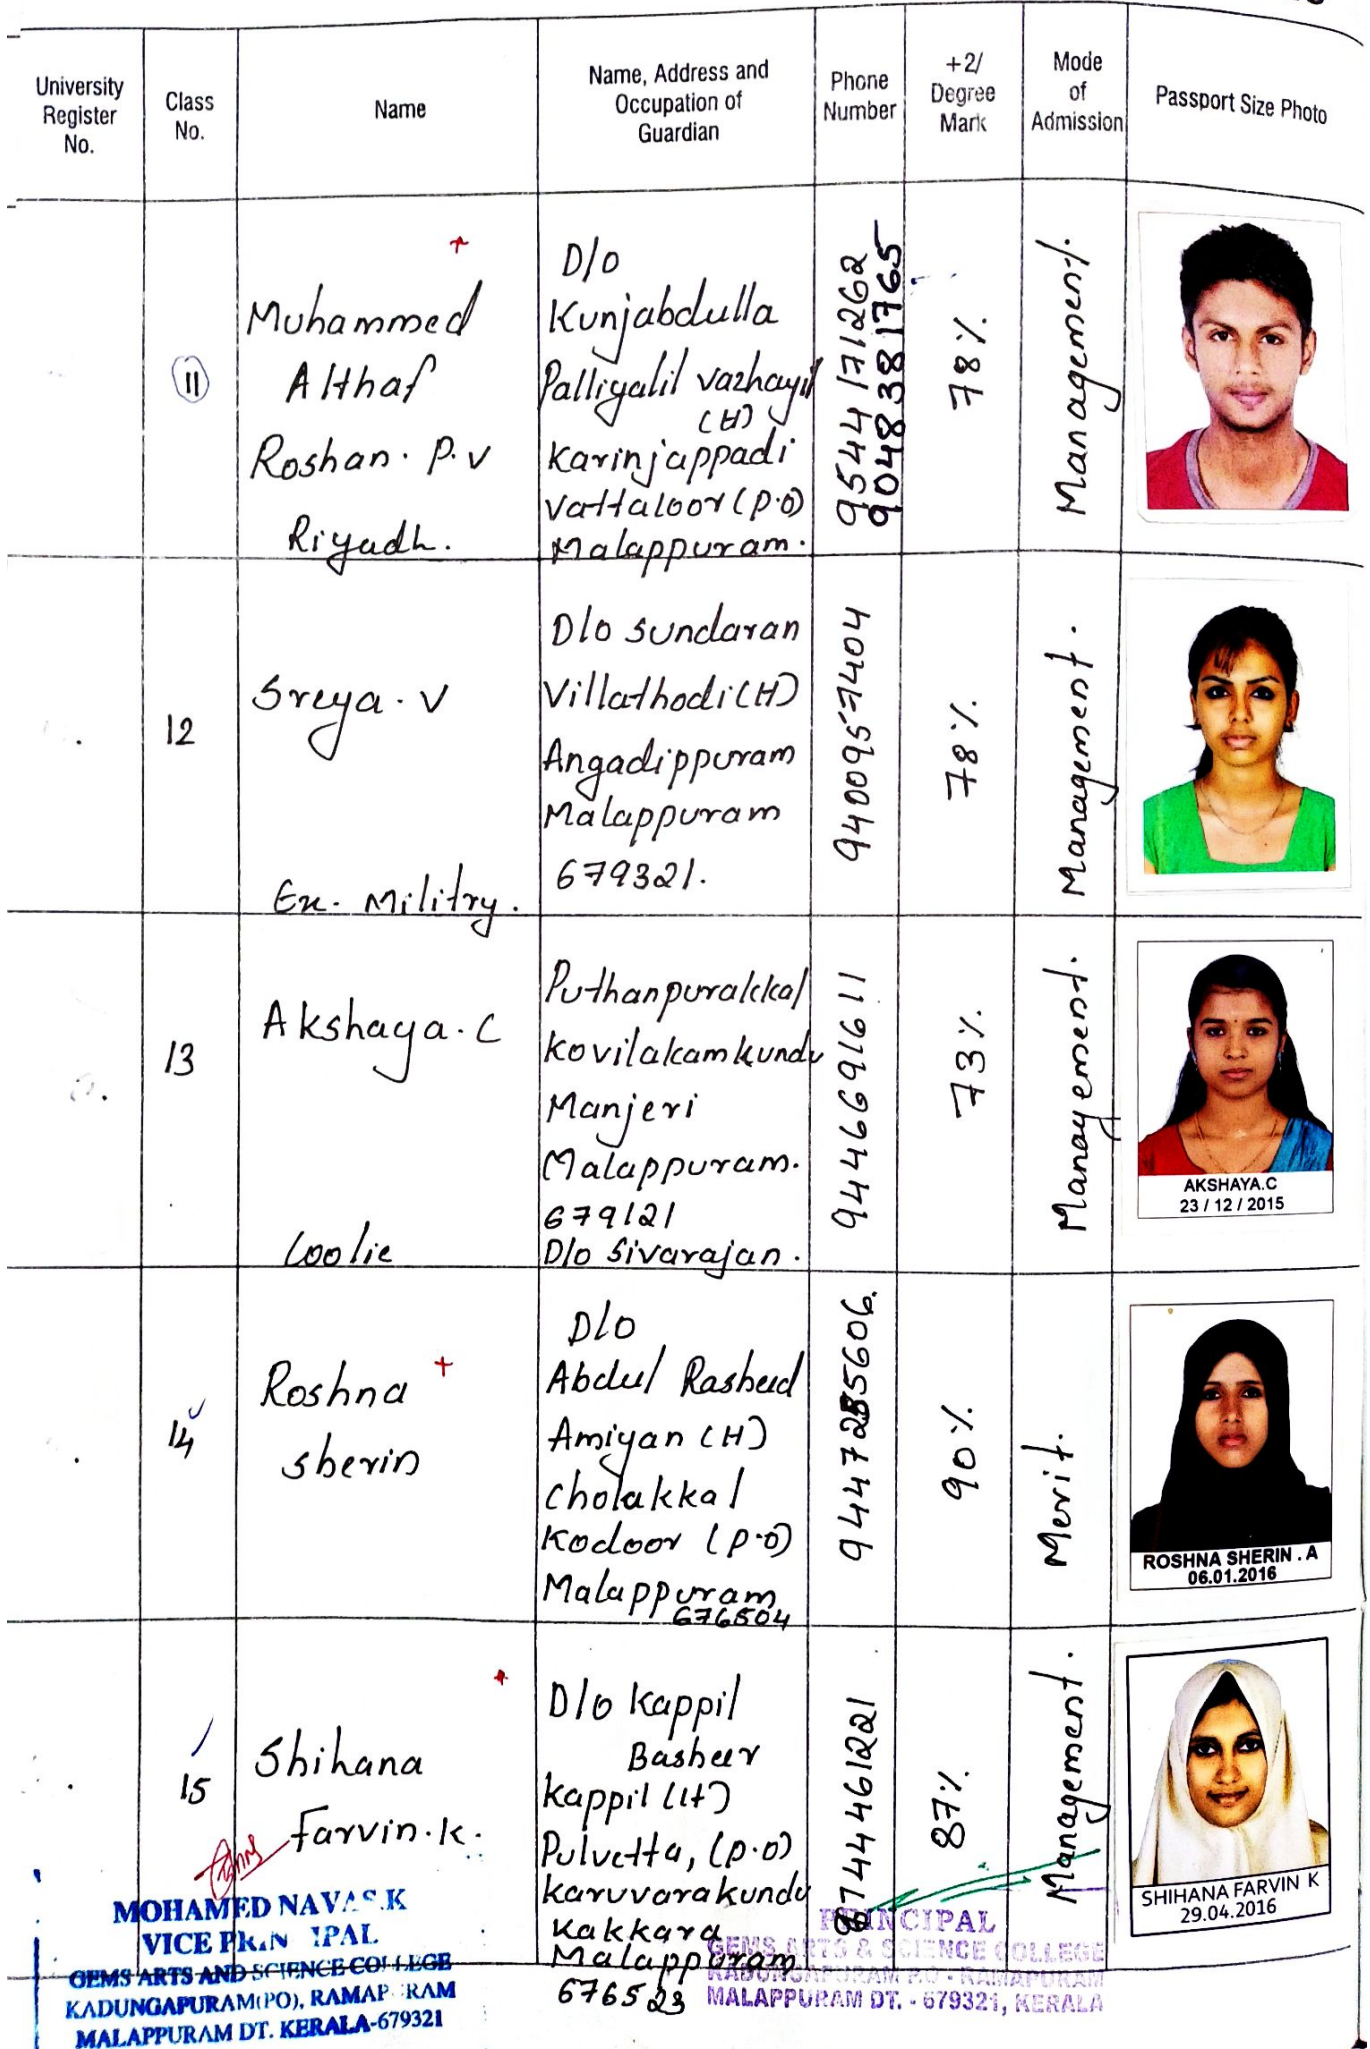 University Register No.
Class No.
Name
Name, Address and Occupation of Guardian
Phone Number
+2/ Degree Mark
Mode of Admission
Passport Size Photo
11
Muhammed
Althaf
Roshan. P.V
Riyadh.
D/o
Kunjabdulla
Palliyalil vazhayil
(H)
Karinjappadi
Vattaloor (P.O)
Malappuram.
9544171262
9048381765
78%
Management.
12
Sreya. V
Ex. Militry.
D/o Sundaran
Villathodi (H)
Angadippuram
Malappuram
679321.
9400957404
78%
Management.
13
Akshaya. C
Coolie
Puthanpurakkal
Kovilakamkundu
Manjeri
Malappuram.
679121
D/o Sivarajan.
9446691611
73%
Management.
AKSHAYA.C
23 / 12 / 2015
14
Roshna
Sherin
D/o
Abdul Rasheed
Amiyan (H)
Cholakkal
Kodoor (P.O)
Malappuram
676504
9447285606.
90%
Merit.
ROSHNA SHERIN . A
06.01.2016
15
Shihana
Farvin. K.
D/o Kappil
Basheer
Kappil (H)
Pulvetta, (P.O)
Karuvarakundu
Kakkara
Malappuram
676523
8744461221
87%
Management.
SHIHANA FARVIN K
29.04.2016
MOHAMED NAVAS.K
VICE PRINCIPAL
GEMS ARTS AND SCIENCE COLLEGE
KADUNGAPURAM(PO), RAMAPURAM
MALAPPURAM DT. KERALA-679321
PRINCIPAL
GEMS ARTS & SCIENCE COLLEGE
KADUNGAPURAM P.O - RAMAPURAM
MALAPPURAM DT. - 679321, KERALA